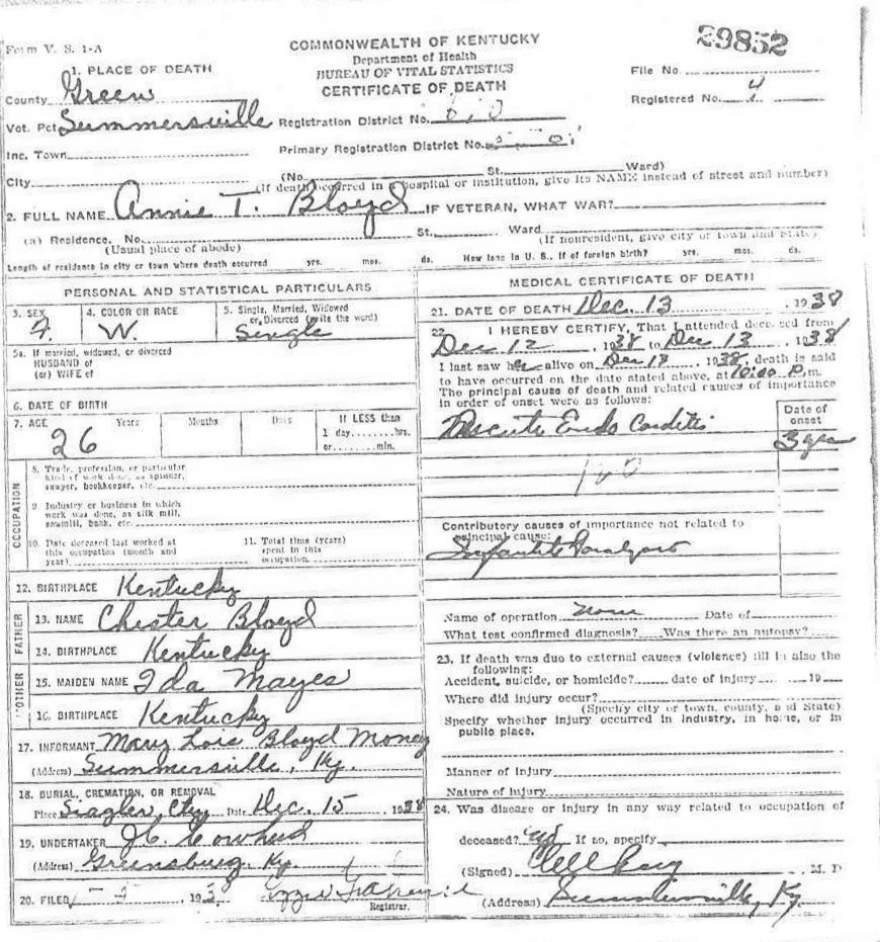 Form V. S. 1-A
COMMONWEALTH OF KENTUCKY
Department of Health
BUREAU OF VITAL STATISTICS
CERTIFICATE OF DEATH
29852
File No.
Registered No. 4
1. PLACE OF DEATH
County Green
Vot. Pct Summersville Registration District No.
Inc. Town Primary Registration District No.
City (No. St. Ward)
(If death occurred in a hospital or institution, give its NAME instead of street and number)
2. FULL NAME Annie T. Bloyd IF VETERAN, WHAT WAR?
(a) Residence. No. St. Ward
(Usual place of abode) (If nonresident, give city or town and State)
Length of residence in city or town where death occurred yrs. mos. ds. How long in U. S., if of foreign birth? yrs. mos. ds.
PERSONAL AND STATISTICAL PARTICULARS
3. SEX 4. COLOR OR RACE 5. Single, Married, Widowed
or Divorced (write the word)
F. W. Single
5a. If married, widowed, or divorced
HUSBAND of
(or) WIFE of
6. DATE OF BIRTH
7. AGE Years Months Days If LESS than
1 day........hrs.
or........min.
26
OCCUPATION
8. Trade, profession, or particular
kind of work done, as spinner,
sawyer, bookkeeper, etc.
9. Industry or business in which
work was done, as silk mill,
sawmill, bank, etc.
10. Date deceased last worked at
this occupation (month and
year)
11. Total time (years)
spent in this
occupation
12. BIRTHPLACE Kentucky
FATHER
13. NAME Chester Bloyd
14. BIRTHPLACE Kentucky
MOTHER
15. MAIDEN NAME Ida Mayes
16. BIRTHPLACE Kentucky
17. INFORMANT Mary Lois Bloyd
(Address) Summersville, Ky.
18. BURIAL, CREMATION, OR REMOVAL
Place Date Dec. 15, 1938
19. UNDERTAKER J.C. Cowherd
(Address) Greensburg Ky.
20. FILED , 193
Registrar.
MEDICAL CERTIFICATE OF DEATH
21. DATE OF DEATH Dec. 13, 1938
22. I HEREBY CERTIFY, That I attended deceased from
Dec 12, 1938 to Dec 13, 1938
I last saw her alive on Dec 13, 1938, death is said
to have occurred on the date stated above, at 10:00 P.m.
The principal cause of death and related causes of importance
in order of onset were as follows:
Date of
onset
Endo Carditis
3 yrs
Contributory causes of importance not related to
principal cause:
Infantile Paralysis
Name of operation None Date of
What test confirmed diagnosis? Was there an autopsy?
23. If death was due to external causes (violence) fill in also the
following:
Accident, suicide, or homicide? date of injury 19
Where did injury occur?
(Specify city or town, county, and State)
Specify whether injury occurred in industry, in home, or in
public place.
Manner of injury
Nature of injury
24. Was disease or injury in any way related to occupation of
deceased? If so, specify
(Signed) , M. D
(Address) Summersville, Ky.